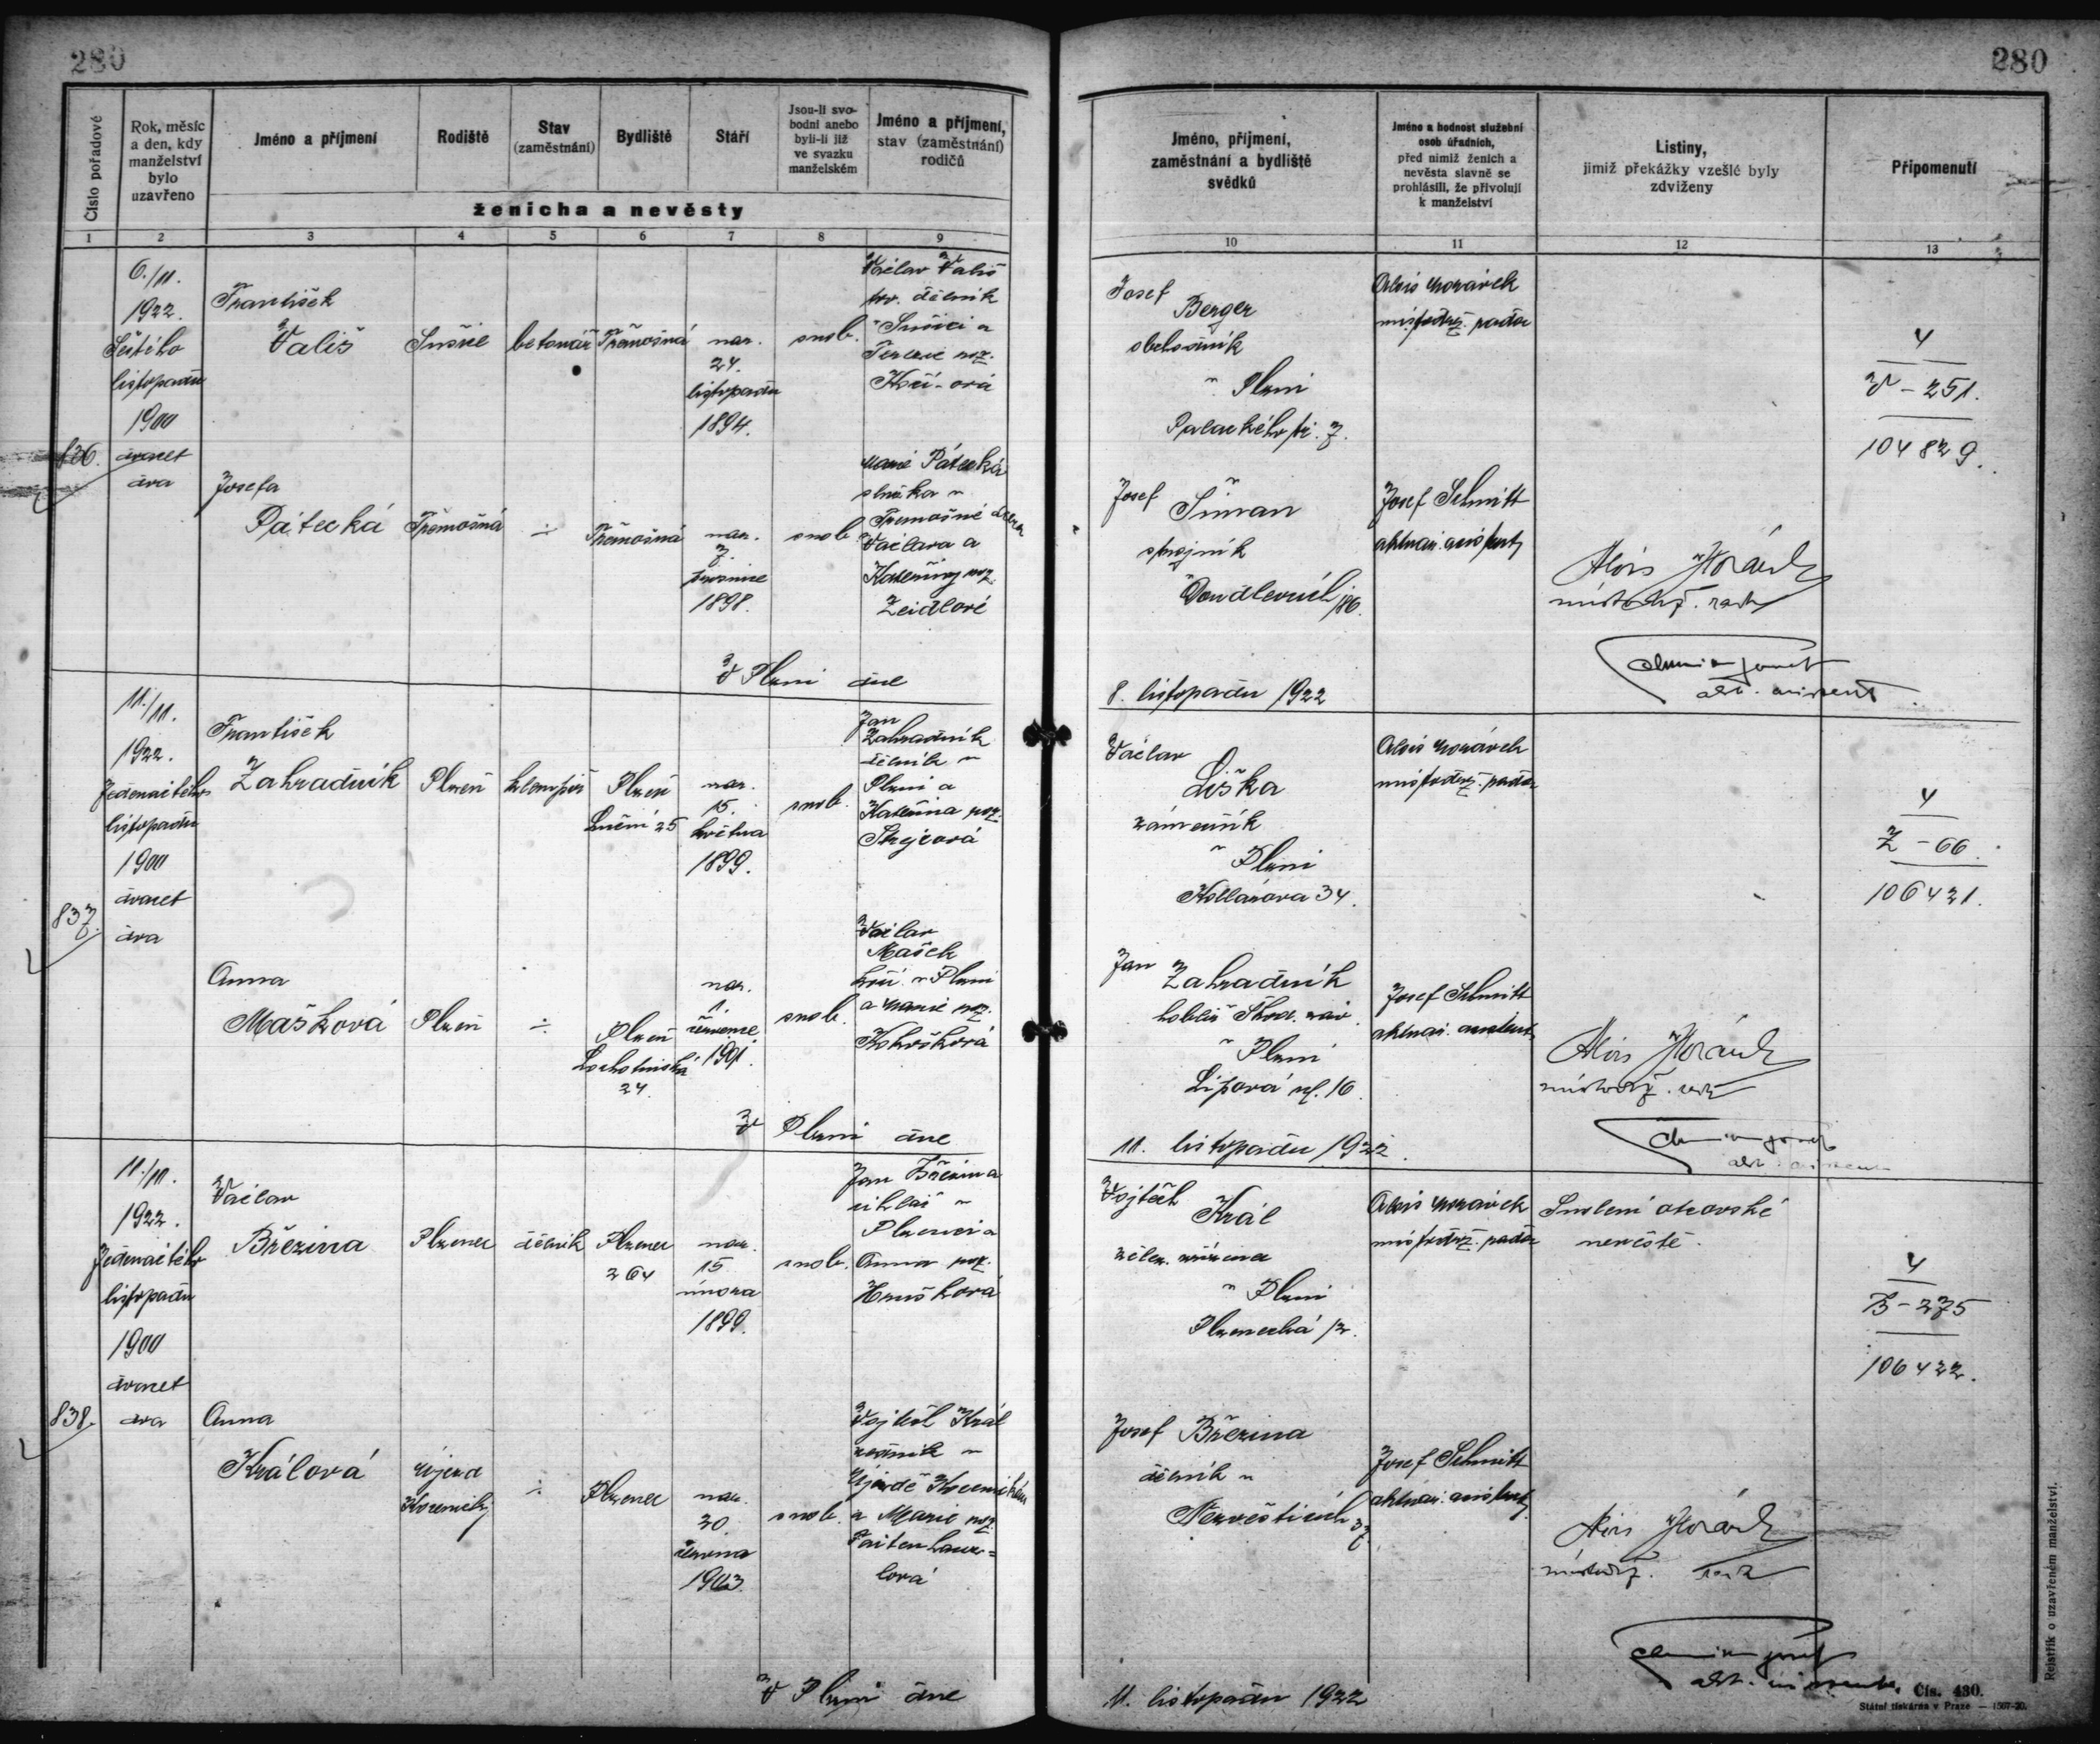 280
280
Číslo pořadové
Rok, měsíc
a den, kdy
manželství
bylo
uzavřeno
Jméno a příjmení
Rodiště
Stav
(zaměstnání)
Bydliště
Stáří
Jsou-li svo-
bodni anebo
byli-li již
ve svazku
manželském
Jméno a příjmení,
stav (zaměstnání)
rodičů
ženicha a nevěsty
1 2 3 4 5 6 7 8 9
Jméno, příjmení,
zaměstnání a bydliště
svědků
Jméno a hodnost služební
osob úřadních,
před nimiž ženich a
nevěsta slavně se
prohlásili, že přivolují
k manželství
Listiny,
jimiž překážky vzešlé byly
zdviženy
Připomenutí
10 11 12 13
836.
6./11.
1922.
Šestého
listopadu
1900
dvacet
dva
František
Vališ
Sušice
betonář
Třemošná
nar.
24.
listopadu
1894.
svob.
Václav Vališ
dělník
v Sušici a
Terezie roz.
Josefa
Pátecká
Třemošná
÷
Třemošná
nar.
7.
prosince
1898.
svob.
Marie Pátecká
služka v
Třemošné dcera
Václava a
Kateřiny roz.
Zeidlové
V Plzni dne
8. listopadu 1922
Josef
Berger
obchodník
v Plzni
Palackého tř. 7.
Josef
Šiman
strojník
v Doudlevcích 186.
Alois Morávek
místodrž. rada
Josef Schmitt
aktuár. assistent
Alois Morávek
místodrž. rada
akt. assistent
4
V - 251.
104829.
837.
11./11.
1922.
Jedenáctého
listopadu
1900
dvacet
dva
František
Zahradník
Plzeň
klempíř
Plzeň
Luční 25
nar.
15.
května
1899.
svob.
Jan
Zahradník
dělník v
Plzni a
Kateřina roz.
Strejcová
Anna
Mašková
Plzeň
÷
Plzeň
Lochotínská
24.
nar.
1.
července
1901.
svob.
Václav
Mašek
v Plzni
a Marie roz.
Kokošková
V Plzni dne
11. listopadu 1922.
Václav
Liška
zámečník
v Plzni
Kollárova 34.
Jan
Zahradník
hoblíř Škod. záv.
v Plzni
Lipová ul. 16.
Alois Morávek
místodrž. rada
Josef Schmitt
aktuár. assistent
Alois Morávek
místodrž. rada
akt. assistent
4
Z - 66.
106421.
838.
11./11.
1922.
Jedenáctého
listopadu
1900
dvacet
dva
Václav
Březina
Plzenec
dělník
Plzenec
264
nar.
15.
února
1899.
svob.
Jan Březina
v
Plzenci a
Anna roz.
Hrušková
Anna
Králová
Újezd
÷
Plzenec
nar.
30.
června
1903.
svob.
Vojtěch Král
v
Újezdě
a Marie roz.
V Plzni dne
11. listopadu 1922
Vojtěch
Král
zřízenec
v Plzni
Plzenecká 12.
Josef Březina
dělník v
Nezvěsticích 37.
Alois Morávek
místodrž. rada
Josef Schmitt
aktuár. assistent
Svolení otcovské
nevěstě.
Alois Morávek
místodrž. rada
akt. assistent
4
B - 275
106422.
Čís. 430.
Státní tiskárna v Praze — 1507-20.
Rejstřík o uzavřeném manželství.